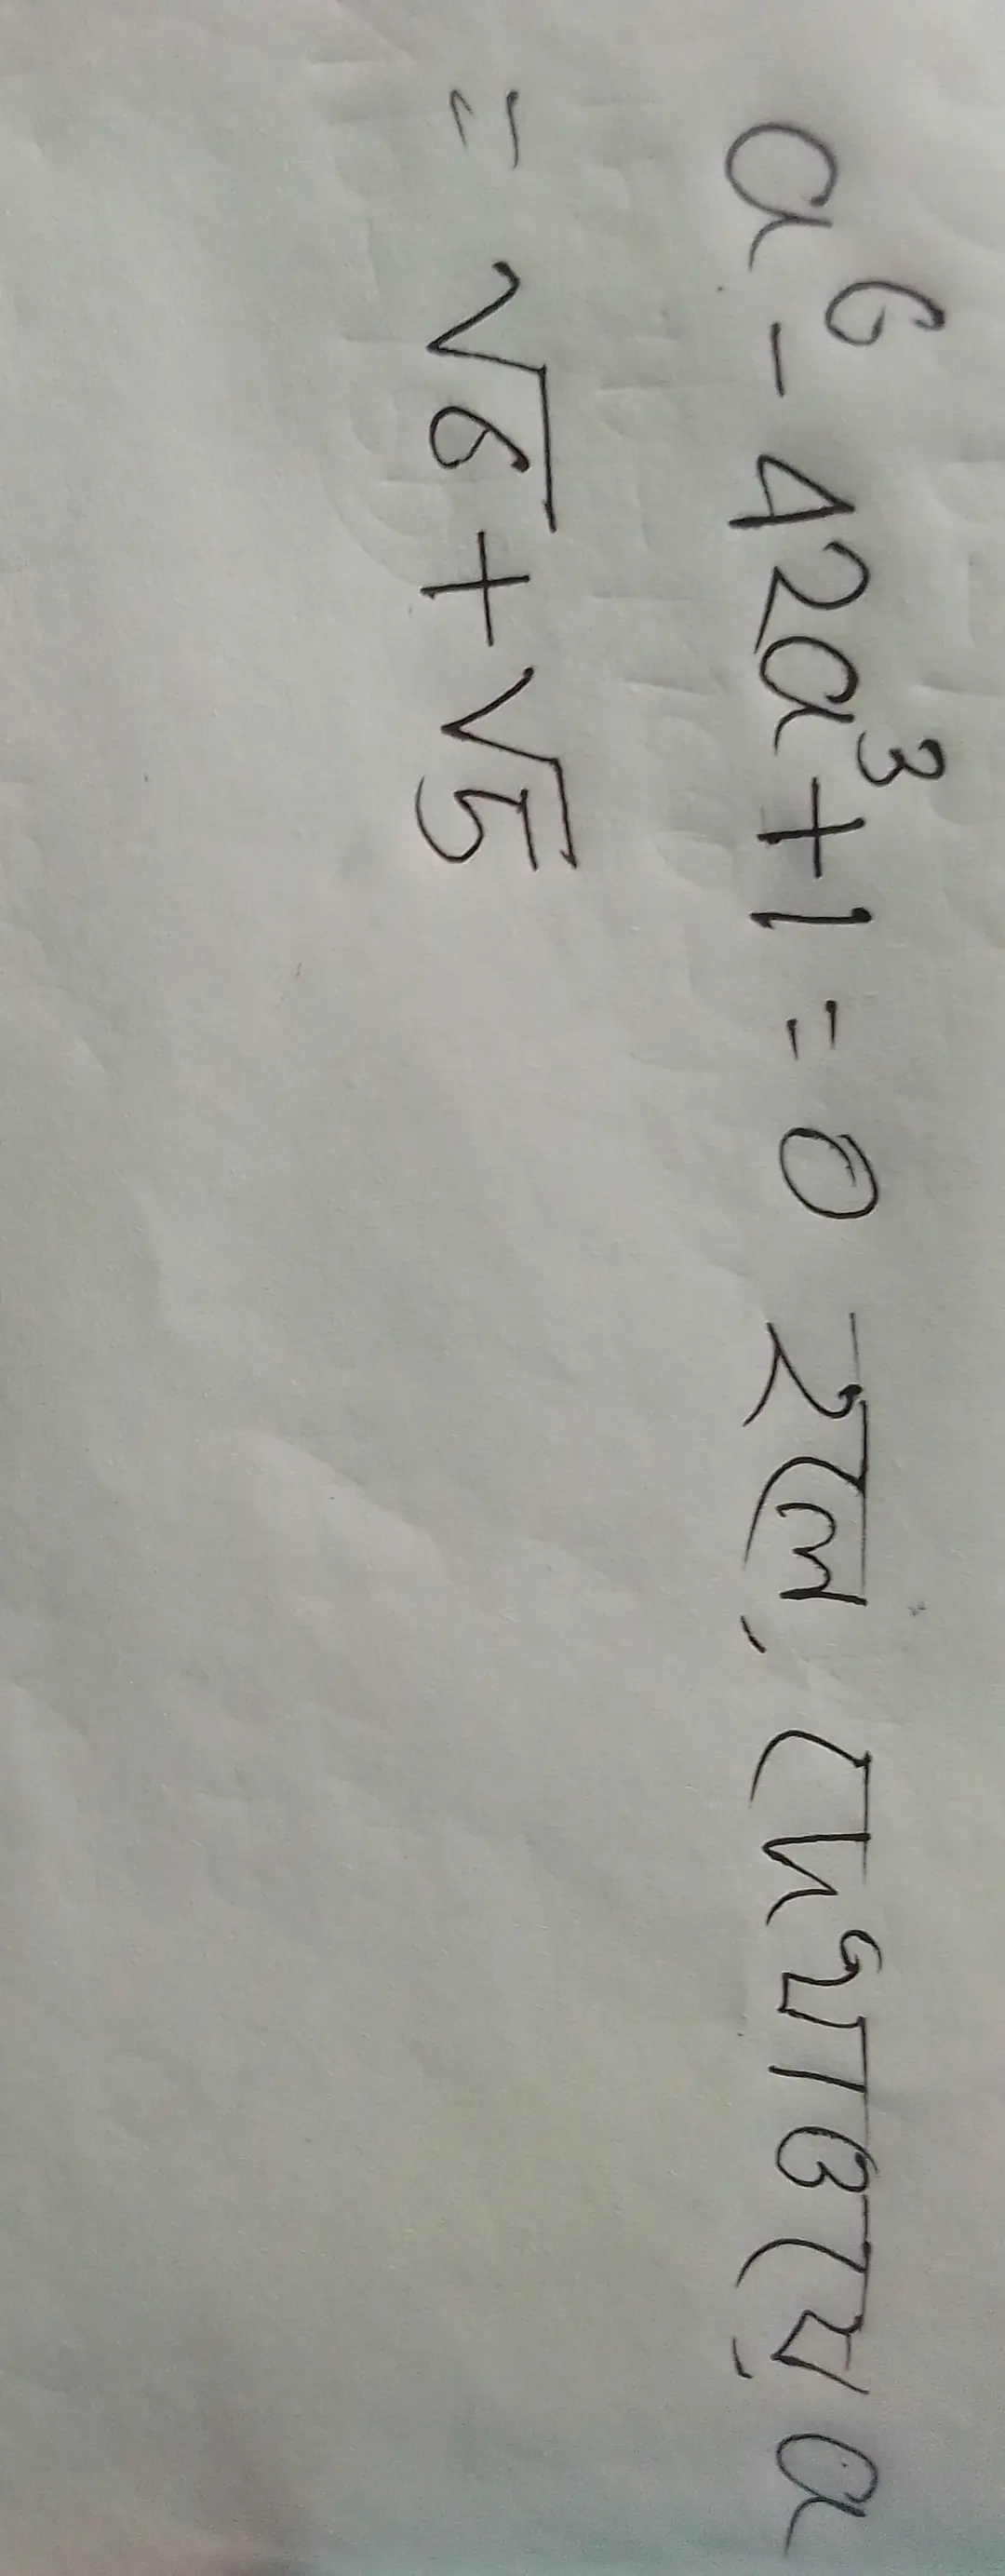 a⁶ - 42a³ + 1 = 0 হলে, দেখাওযে, a
= √6 + √5